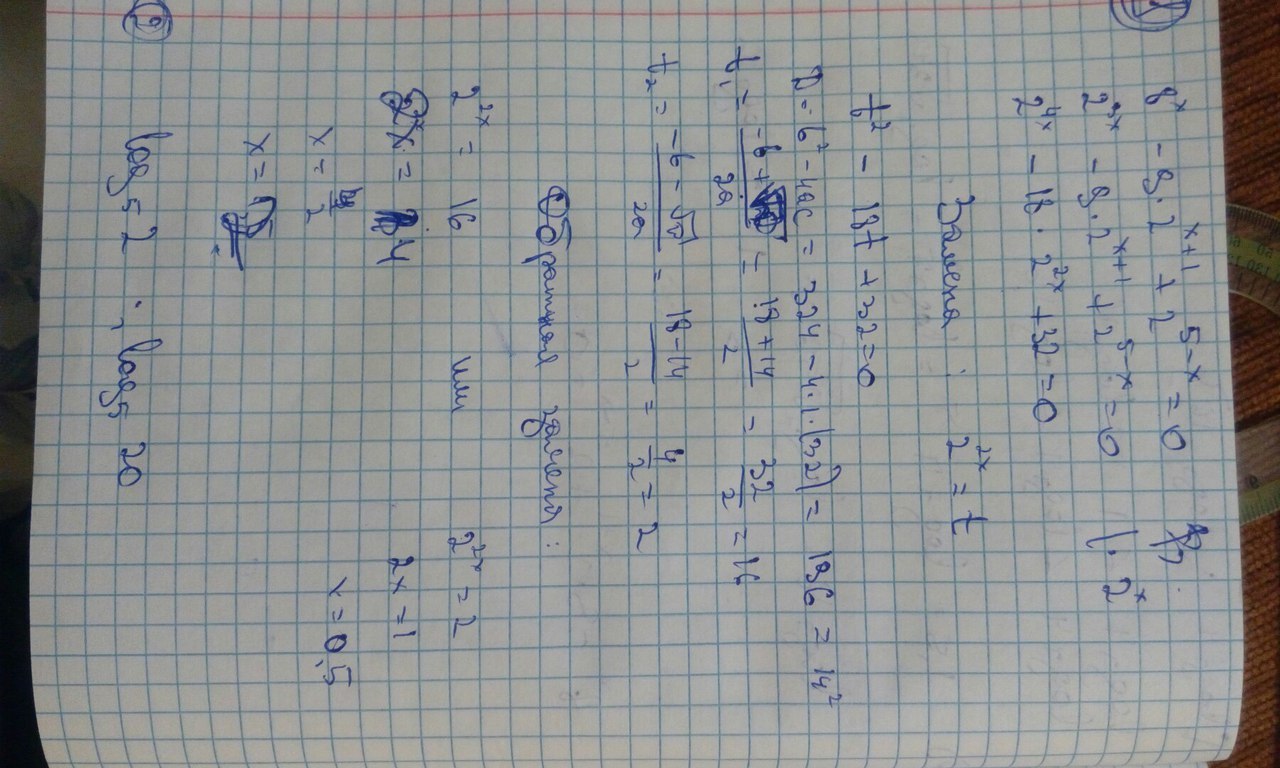 8^x - 9·2^{x+1} + 2^{5-x} = 0
2^{3x} - 9·2^{x+1} + 2^{5-x} = 0 |·2^x
2^{4x} - 18·2^{2x} + 32 = 0
Замена: 2^{2x} = t
t² - 18t + 32 = 0
D = b² - 4ac = 324 - 4·1·(32) = 196 = 14²
t₁ = \frac{-b + }{2a} = \frac{18+14}{2} = \frac{32}{2} = 16
t₂ = \frac{-b-\sqrt{D}}{2a} = \frac{18-14}{2} = \frac{4}{2} = 2
Обратная замена:
2^{2x} = 16 или 2^{2x} = 2
2x = 4 2x = 1
x = \frac{4}{2} x = 0,5
x =
②
log₅ 2 ; log₅ 20